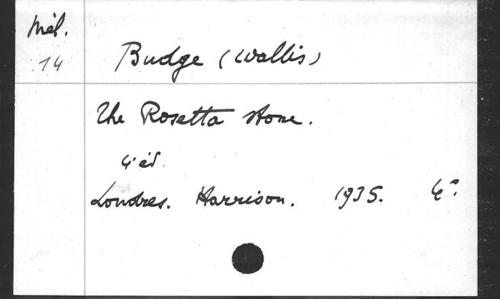 Mél.
14
Budge (Wallis)
The Rosetta stone.
4e éd.
Londres. Harrison. 1935. 4°.